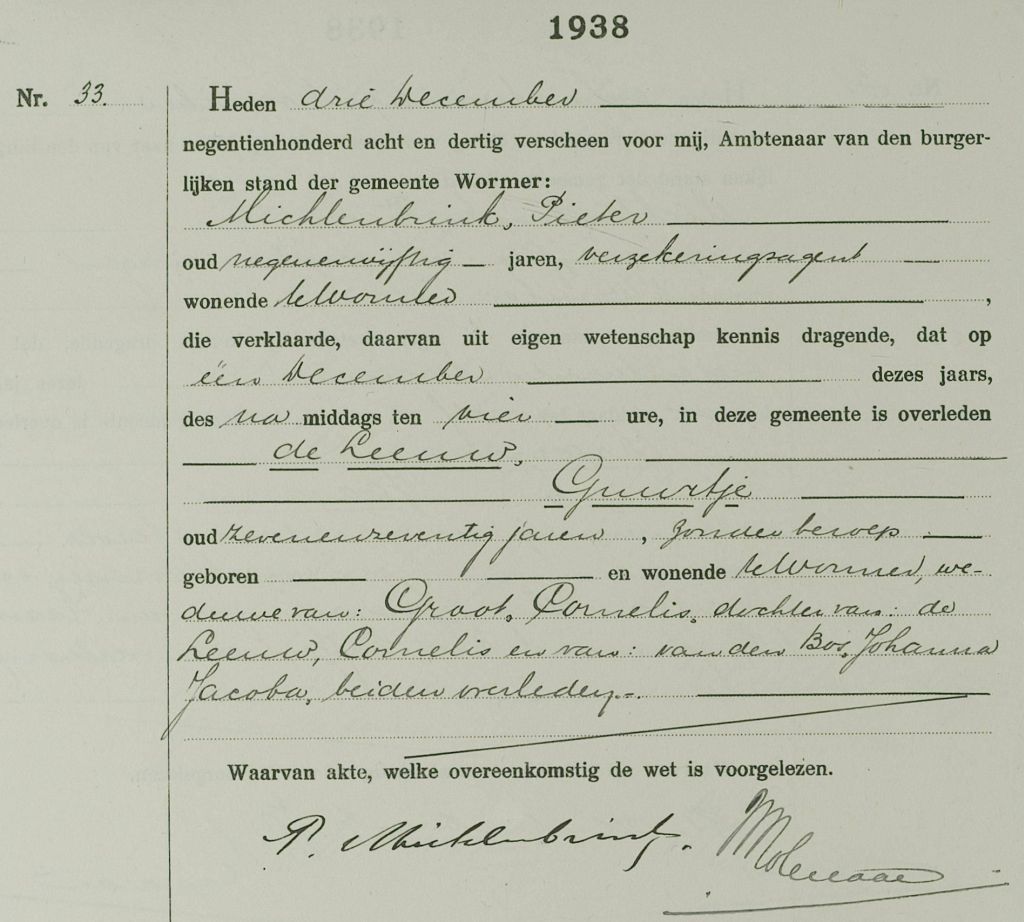 1938
Nr. 33. Heden drie December
negentienhonderd acht en dertig verscheen voor mij, Ambtenaar van den burger-
lijken stand der gemeente Wormer:
Michlenbrink, Pieter
oud negenenvijftig jaren, verzekeringsagent
wonende te Wormer,
die verklaarde, daarvan uit eigen wetenschap kennis dragende, dat op
één December dezes jaars,
des na middags ten vier ure, in deze gemeente is overleden
de Leeuw,
Guurtje
oud zevenenzeventig jaren, zonder beroep
geboren en wonende te Wormer, we-
duwe van: Groot, Cornelis, dochter van: de
Leeuw, Cornelis en van: van den Bos, Johanna
Jacoba, beiden overleden.
Waarvan akte, welke overeenkomstig de wet is voorgelezen.
P. Michlenbrink. Molenaar